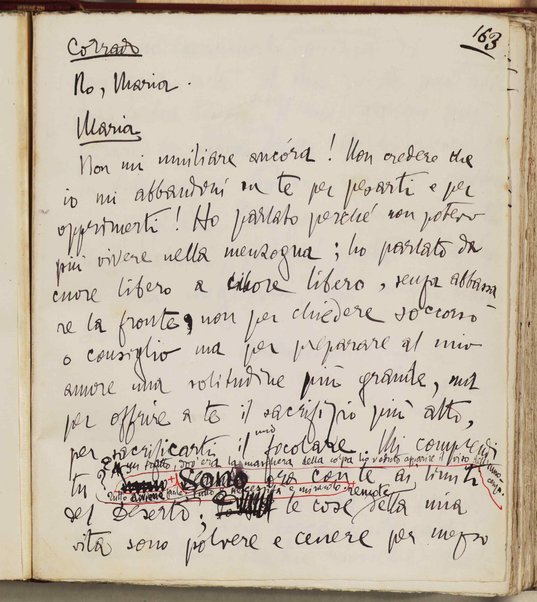 163
Corrado
No, Maria.
Maria
Non mi umiliare ancóra! Non credere che
io mi abbandoni su te per pesarti e per
opprimerti! Ho parlato perché non potevo
più vivere nella menzogna; ho parlato da
cuore libero a cuore libero, senza abbassa-
re la fronte, non per chiedere soccorso
o consiglio ma per preparare al mio
amore una solitudine più grande, ma
per offrire a te il sacrifizio più alto,
per sacrificarti il mio focolare. Mi comprendi
un tratto, dov'era la maschera della colpa ho veduto apparire il viso
tu? Sono ora con te ai limiti
Tutto diviene
del Deserto; remote
le cose della mia
vita sono polvere e cenere per mezzo